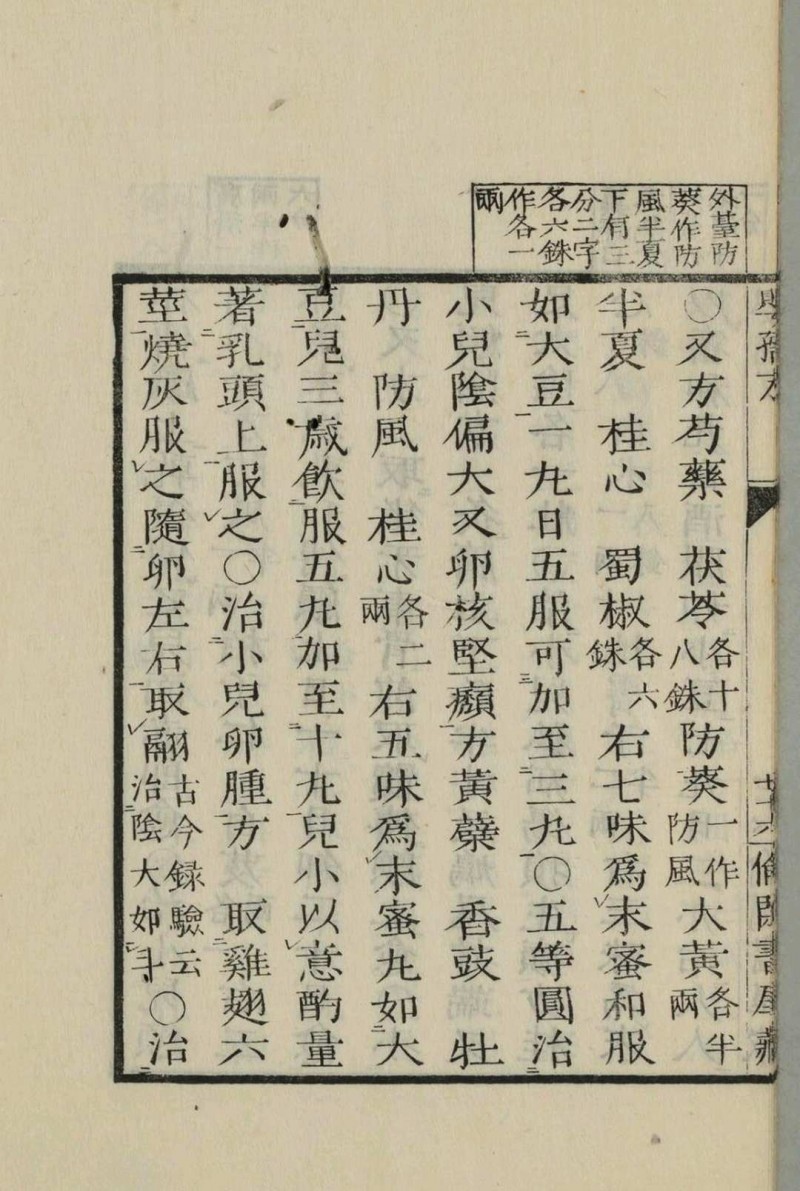 外䑓防
葵作防
風半夏
下有三
分二字
各六銖
作各一
兩
〇又方芍藥　茯苓各十八銖防葵一作防風大黃各半兩
半夏　桂心　蜀椒各六銖右七味爲末蜜和服
如大豆一丸日五服可加至三丸〇五等圓治
小兒陰偏大又卵核堅㿗方黃蘗　香豉　牡
丹　防風　桂心各二兩右五味爲末蜜丸如大
豆兒三歲飲服五丸加至十丸兒小以意酌量
著乳頭上服之〇治小兒卵腫方　取雞翅六
莖燒灰服之隨卵左右取翮古今録驗云治陰大如斗〇治